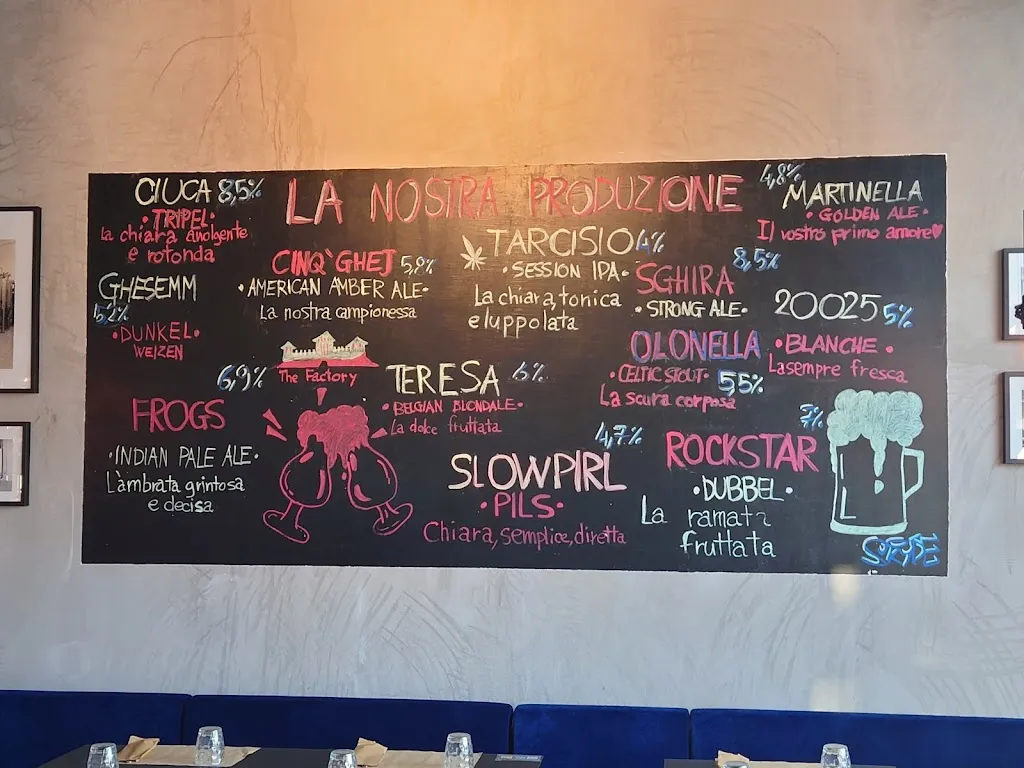 LA NOSTRA PRODUZIONE
CIUCA 8,5%
·TRIPEL·
la chiara avolgente
e rotonda
GHESEMM
5,2%
·DUNKEL·
WEIZEN
6,9%
FROGS
·INDIAN PALE ALE·
L'àmbrata, grintosa
e decisa
CINQ'GHEJ 5,9%
·AMERICAN AMBER ALE·
La nostra campionessa
The Factory
TERESA 6%
·BELGIAN BLONDALE·
La dolce fruttata
TARCISIO 4%
·SESSION IPA·
La chiara, tonica
e luppolata
4,7%
SLOWPIRL
·PILS·
Chiara, semplice, diretta
4,8%
MARTINELLA
·GOLDEN ALE·
Il vostro primo amore
8,5%
SGHIRA
·STRONG ALE·
20025 5%
·BLANCHE·
La sempre fresca
OLONELLA
·CELTIC STOUT· 55%
La scura corposa
7%
ROCKSTAR
·DUBBEL·
La ramata
fruttata